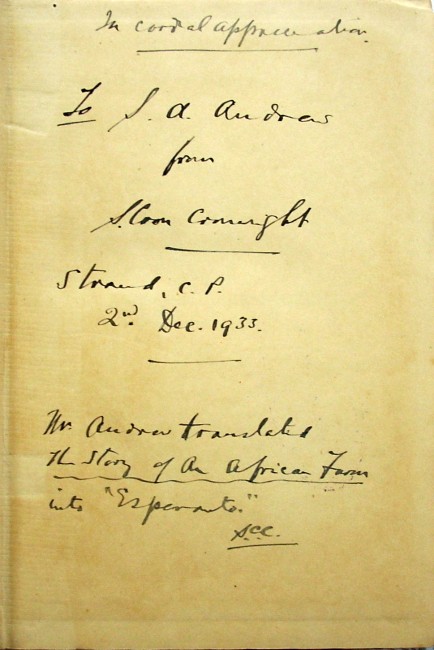 In cordial appreciation.
To S. A. Andrew
from
S. Cron Cronwright
Strand, C. P.
2nd Dec. 1933.
Mr Andrew translated
The Story of An African Farm
into "Esperanto."
S.C.C.